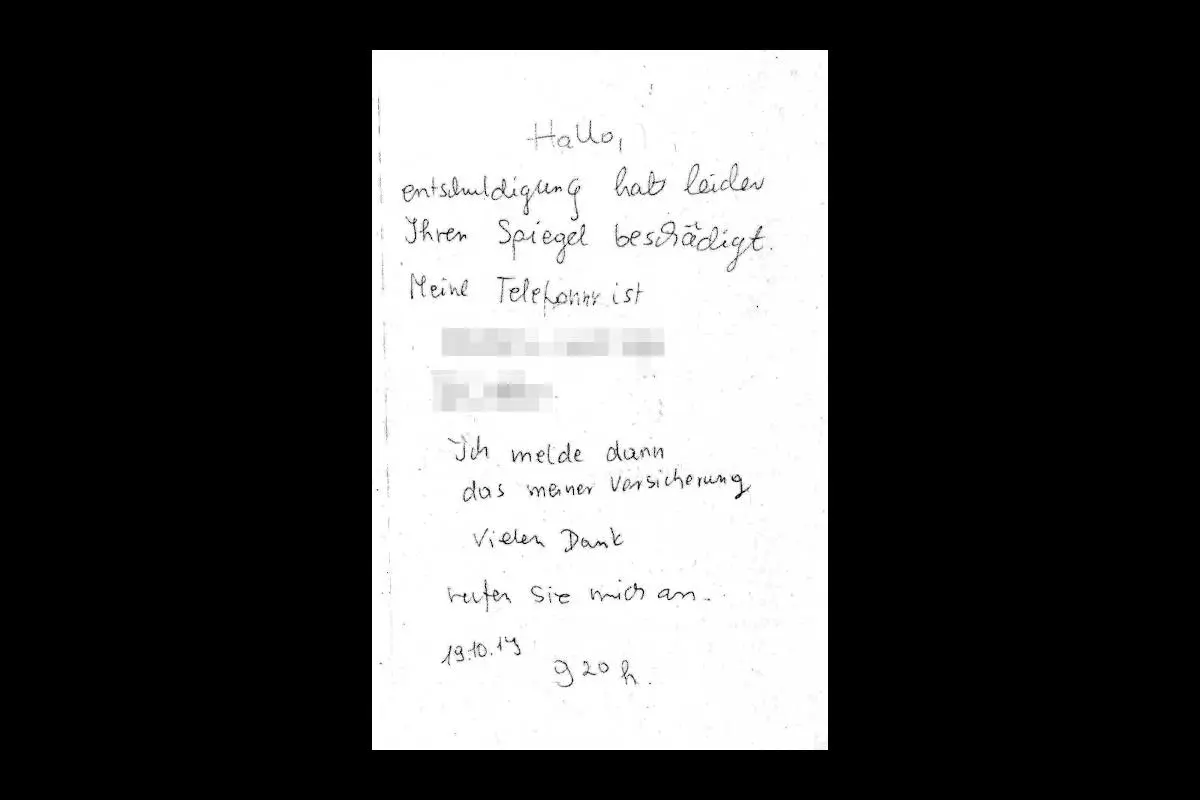 Hallo,
entschuldigung hab leider
Ihren Spiegel beschädigt.
Meine Telefonnr ist
Ich melde dann
das meiner Versicherung
Vielen Dank
rufen Sie mich an.
19.10.19
9 20 h.